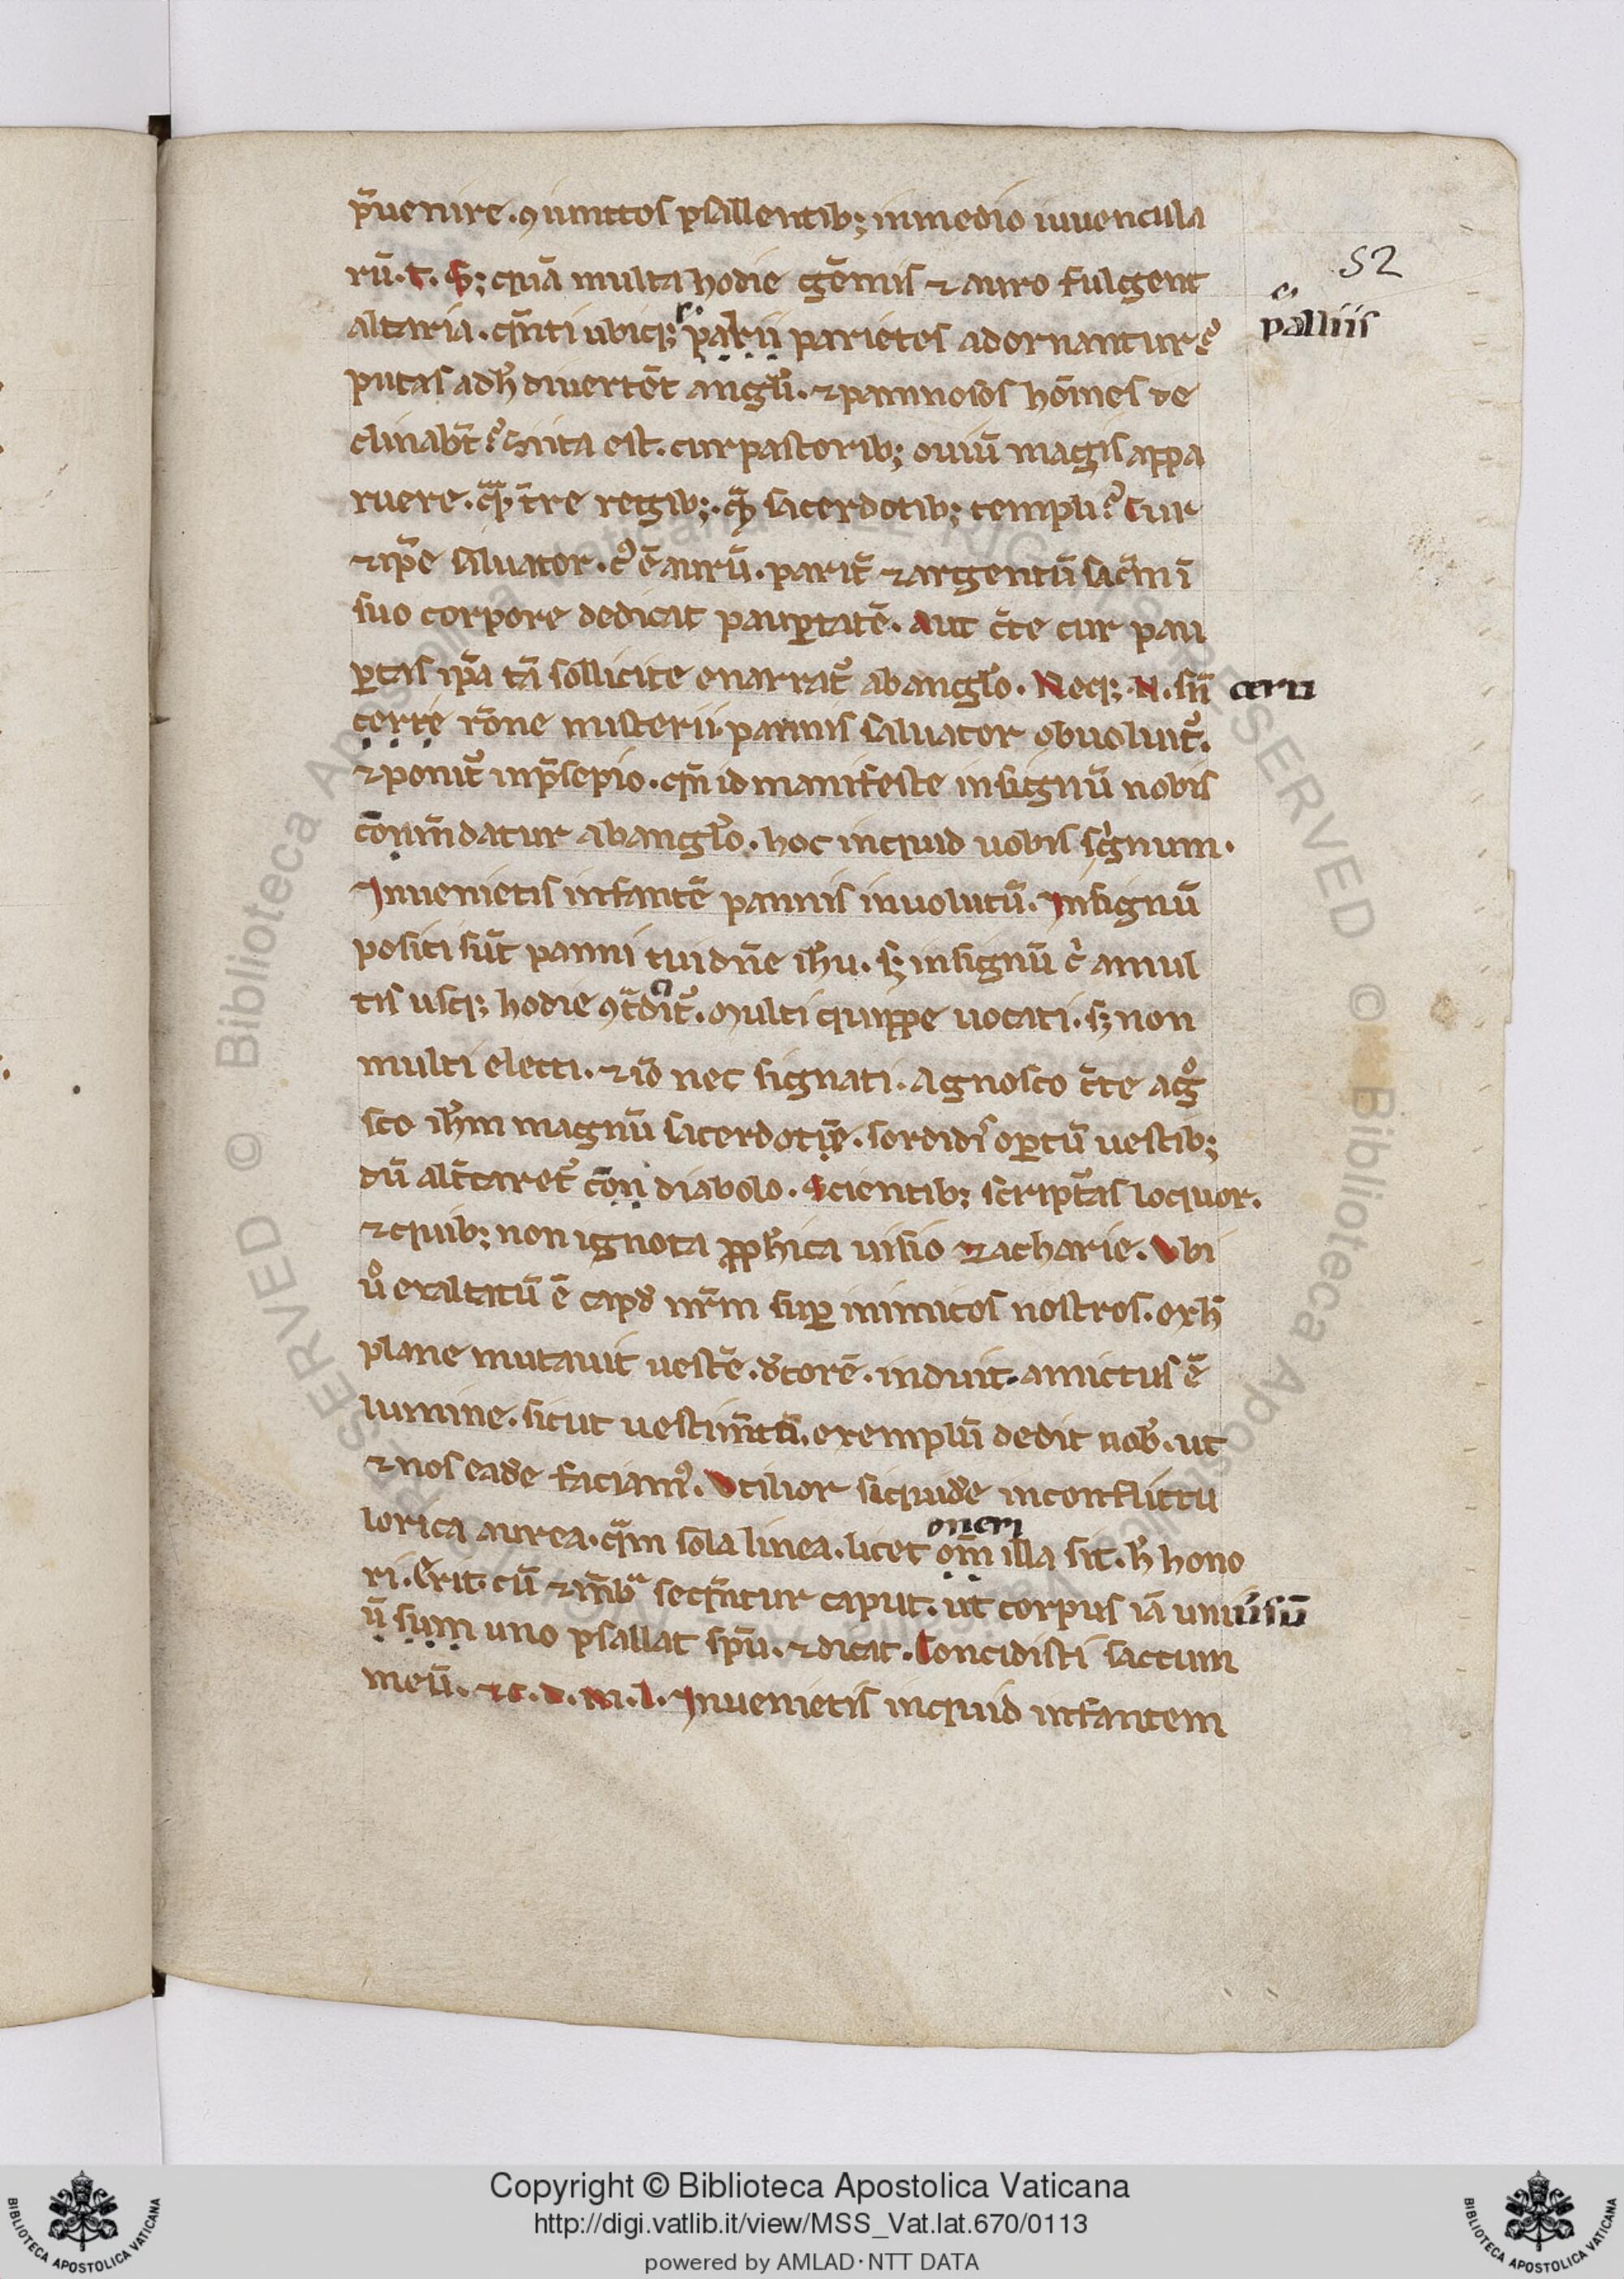 p̄uenire. ꝯiunctos psallentib; in medio iuuencula
rū. t. S; quā multa hodie gēmis ⁊ auro fulgent
altaria. qn̄ti ubiq; parii parietes adornantur?
52
palliis
putas ad h̄ diuertēt angłi. ⁊ pannosos hōines de
clinabt̄? Si ita est. cur pastorib; ouiū magis appa
ruere. tr̄re regib;. sacerdotib; templi? Cur
⁊ ip̄e saluator. c᾽ ē aurū. parit̄ ⁊ argentū
suo corpore dedicat paup̱tatē. Aut c̄te cur pau
ꝑtas ip̄a tā sollicite enarrat᷑ ab angło. Neq; .N. sn̄
certe rōne misterii. pannis saluator obuoluit᷑.
certi
⁊ ponit᷑ in p̄sepio. qn̄ id manifeste in signū nobis
cōnm̄datur ab angło. hoc inquid uobis signum.
Inuenietis infantē pannis inuolutū. In signū
positi sūt panni tui dn̄e ih̄u. sꝫ in signū c᾽ a mul
tis usq; hodie ꝯt̄dicit᷑. Multi quippe uocati. sꝫ non
multi electi. ⁊ iō nec signati. Agnosco c̄te agͦ
sco ih̄m magnū sacerdotē. sordidis oꝑtū uestib;
dū alt̄caret᷑ cōn diabolo. Scientib; script̄as loquor.
⁊ quib; non ignota ꝓph̄ica uisio Zacharie. Vbi
uͦ exaltatū ē capđ nr̄m suꝑ inimicos nostros. ex h̄
plane mutauit uestē. đcorē. induit. amictus ē
lumine. sicut uestim̄tū. exemplū dedit nob̄. ut
⁊ nos eađe faciam᾽. Vtilior siquiđe in conflictu
oneri
lorica aurea. qᵃm sola linea. licet om̄ illa sit. h̄ hono
ri. Erit. cū ⁊ m̄bᵃ seqn̄tur caput. ut corpus iā uni
uersū
ū sum uno psallat sp̄u. ⁊ dicat. Concidisti saccum
meū. ⁊ c. d. m. l. Inuenietis inquid infantem
Copyright © Biblioteca Apostolica Vaticana
http://digi.vatlib.it/view/MSS_Vat.lat.670/0113
powered by AMLAD·NTT DATA
BIBLIOTECA APOSTOLICA VATICANA
BIBLIOTECA APOSTOLICA VATICANA